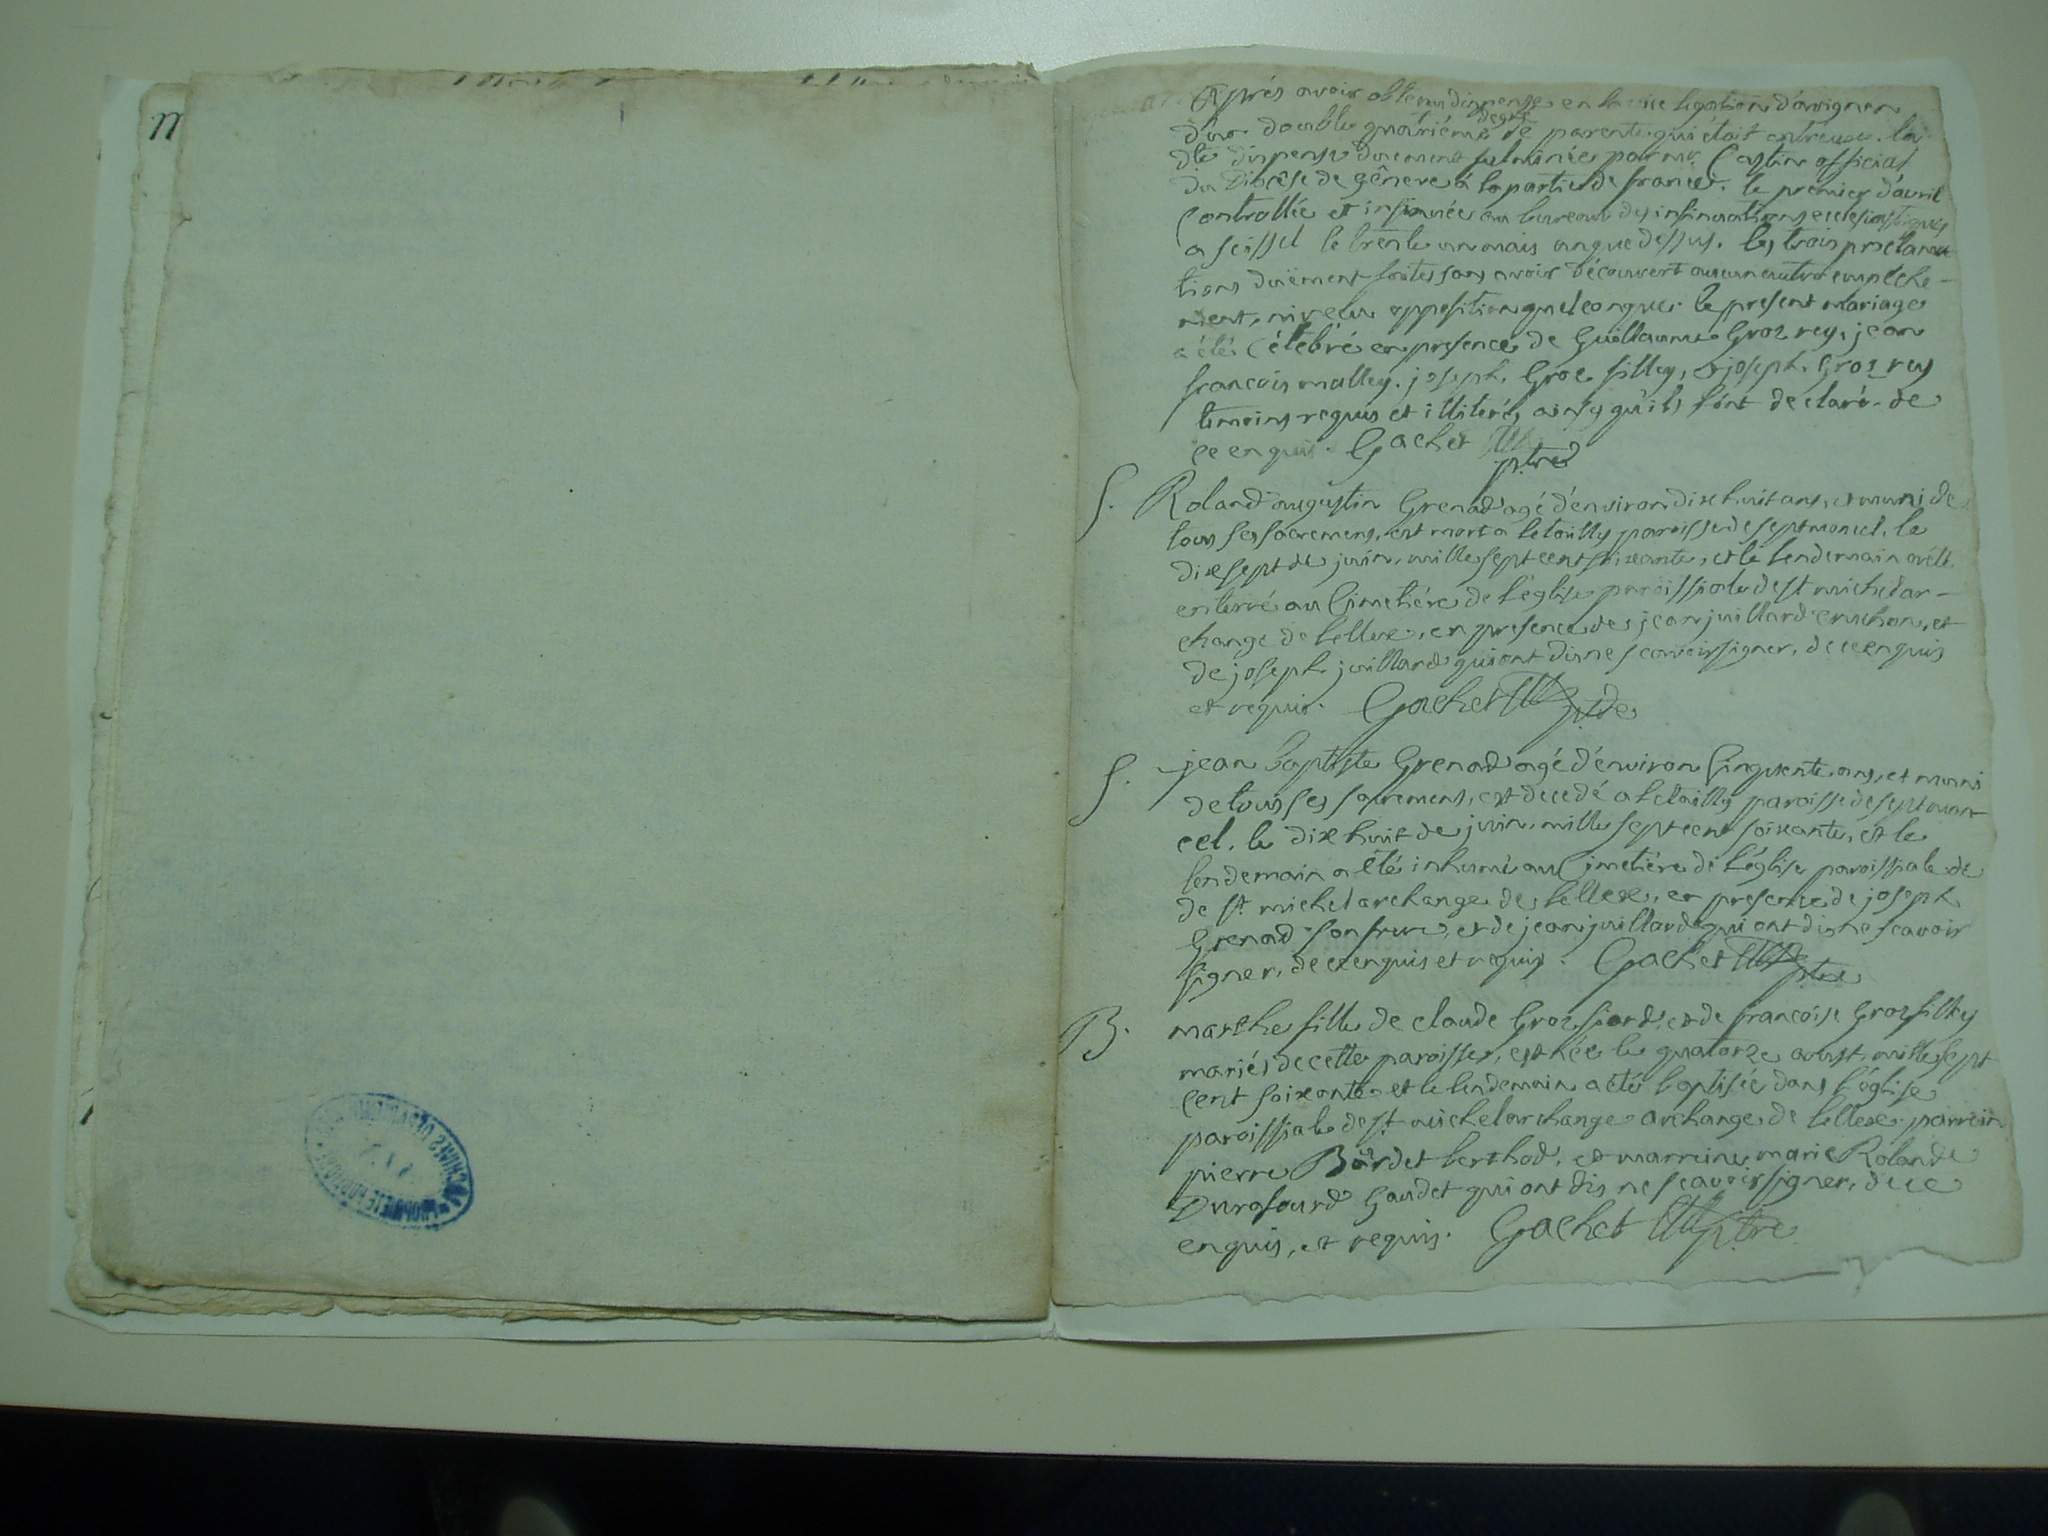 M
Après avoir obtenu dispense en la vice legation d'avignon
d'un double quatriéme degré de parenté qui étoit entreux. la
dte dispense duement fulminée par mr. Castin official
du Diocêse de gêneve à la partie de france. le premier d'avril
Controllée et insinuée au bureau des insinuations ecclesiastiques
a seissel le trente un mars an que dessus. les trois proclama
tions duëment faites sans avoir découvert aucun autre empéche-
ment, ni reçu opposition quelconque. le present mariage
a été Célébré en presence de Guillaume Groz rey, jean
francois malley. joseph Groz filley, & joseph Groz rey
temoins requis et illiterés ainsy qu'ils l'ont declaré. de
ce enquis. Gachet
ptre
S. Roland augustin Grenad agé d'environ dixhuit ans, et muni de
tous ses sacremens, est mort a le tailly paroisse de septmoncel. le
dixsept de juin, mille sept cent soixante, et le lendemain a été
enterré au Cimetiére de l'église paroissiale de st michel ar-
change de lellex, en presence de jean juillard cruchon, et
de joseph juillard qui ont dis ne scavoir signer, de ce enquis
et requis. Gachet ptre
S. jean baptiste Grenad agé d'énviron Cinquente ans, et muni
de tous ses sacremens, est decedé a le tailly paroisse de septmon
cel. le dix huit de juin, mille sept cent soixante, et le
lendemain a été inhumé au Cimetiére de l'église paroissiale de
de st. michel archange de lellex, en presence de joseph
Grenad son frere, et de jean juillard qui ont dis ne scavoir
signer, de ce enquis et requis. Gachet ptre
B. marthe fille de claude Groz fiord, et de francoise Groz filley
mariés de cette paroisse, est née le quatorze aoust, mille sept
cent soixante et le lendemain a été baptisée dans l'église
paroissiale de st. michel archange archange de lellex. parrein
pierre Bordet berthod, et marreine marie Rolande
Durafourd Gaudet qui ont dis ne scavoir signer, de ce
enquis, et requis. Gachet ptre